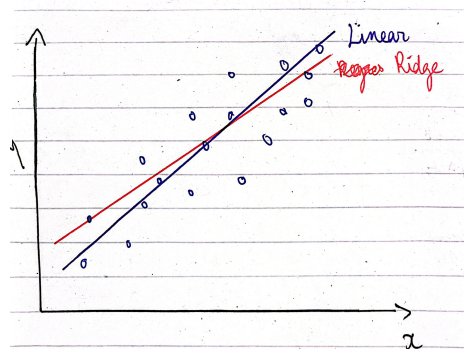 Linear
Ridge
x